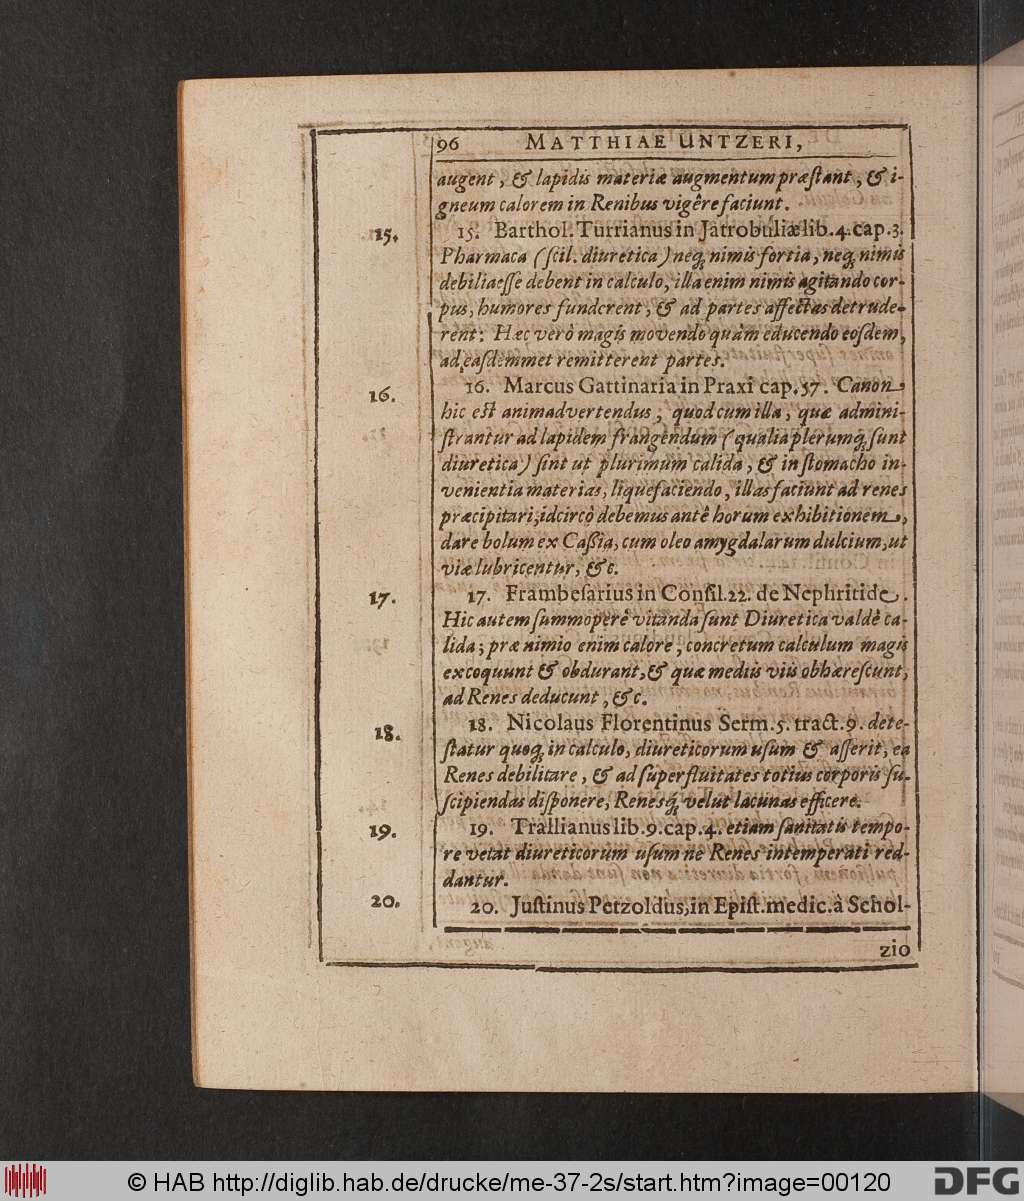 96 MATTHIAE UNTZERI,
augent, & lapidis materiæ augmentum præstant, & i-
gneum calorem in Renibus vigêre faciunt.
15. 15. Barthol. Turrianus in Jatrobuliæ lib. 4. cap. 3.
Pharmaca (scil. diuretica) neq; nimis fortia, neq; nimis
debilia esse debent in calculo, illa enim nimis agitando cor-
pus, humores funderent, & ad partes affectas detrude-
rent: Hæc verò magis movendo quàm educendo eosdem,
ad easdemmet remitterent partes.
16. 16. Marcus Gattinaria in Praxi cap. 37. Canon
hic est animadvertendus, quod cum illa, quæ admini-
strantur ad lapidem frangendum (qualia plerumq; sunt
diuretica) sint ut plurimum calida, & in stomacho in-
venientia materias, liquefaciendo, illas faciunt ad renes
præcipitari, idcircò debemus antê horum exhibitionem,
dare bolum ex Cassia, cum oleo amygdalarum dulcium, ut
viæ lubricentur, &c.
17. 17. Frambesarius in Consil. 22. de Nephritide.
Hic autem summoperê vitanda sunt Diuretica valdê ca-
lida; præ nimio enim calore, concretum calculum magis
excoquunt & obdurant, & quæ mediis viis obhærescunt,
ad Renes deducunt, &c.
18. 18. Nicolaus Florentinus Serm. 5. tract. 9. dete-
statur quoq; in calculo, diureticorum usum & asserit, ea
Renes debilitare, & ad superfluitates totius corporis su-
scipiendas disponere, Renesq; velut lacunas efficere.
19. 19. Trallianus lib. 9. cap. 4. etiam sanitatis tempo-
re vetat diureticorum usum ne Renes intemperati red-
dantur.
20. 20. Justinus Petzoldus, in Epist. medic. à Schol-
zio
© HAB http://diglib.hab.de/drucke/me-37-2s/start.htm?image=00120
DFG